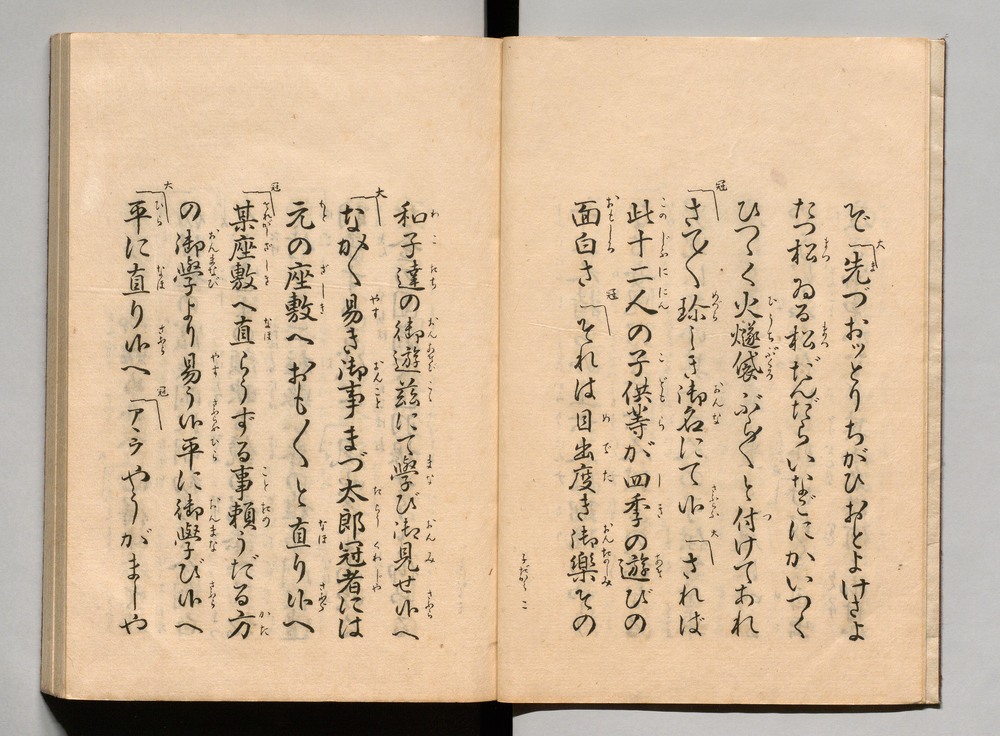 そ「先づおッとりちがひおとよけさよ
たつ松ゐる松だんだらいなごにかいつく
ひつく火燧袋ぶらぶらと付けてあれ
さてさて珍しき御名にて候「されば
此十二人の子供等が四季の遊びの
面白さ「それは目出度き御樂その
和子達の御遊茲にて學び御見せ候へ
ながながし易き御事まづ太郎冠者には
元の座敷へおもおもと直り候へ
某座敷へ直らうずる事頼うだる方
の御學より易う候平に御學び候へ
平に直り候へ「アラやうがましや